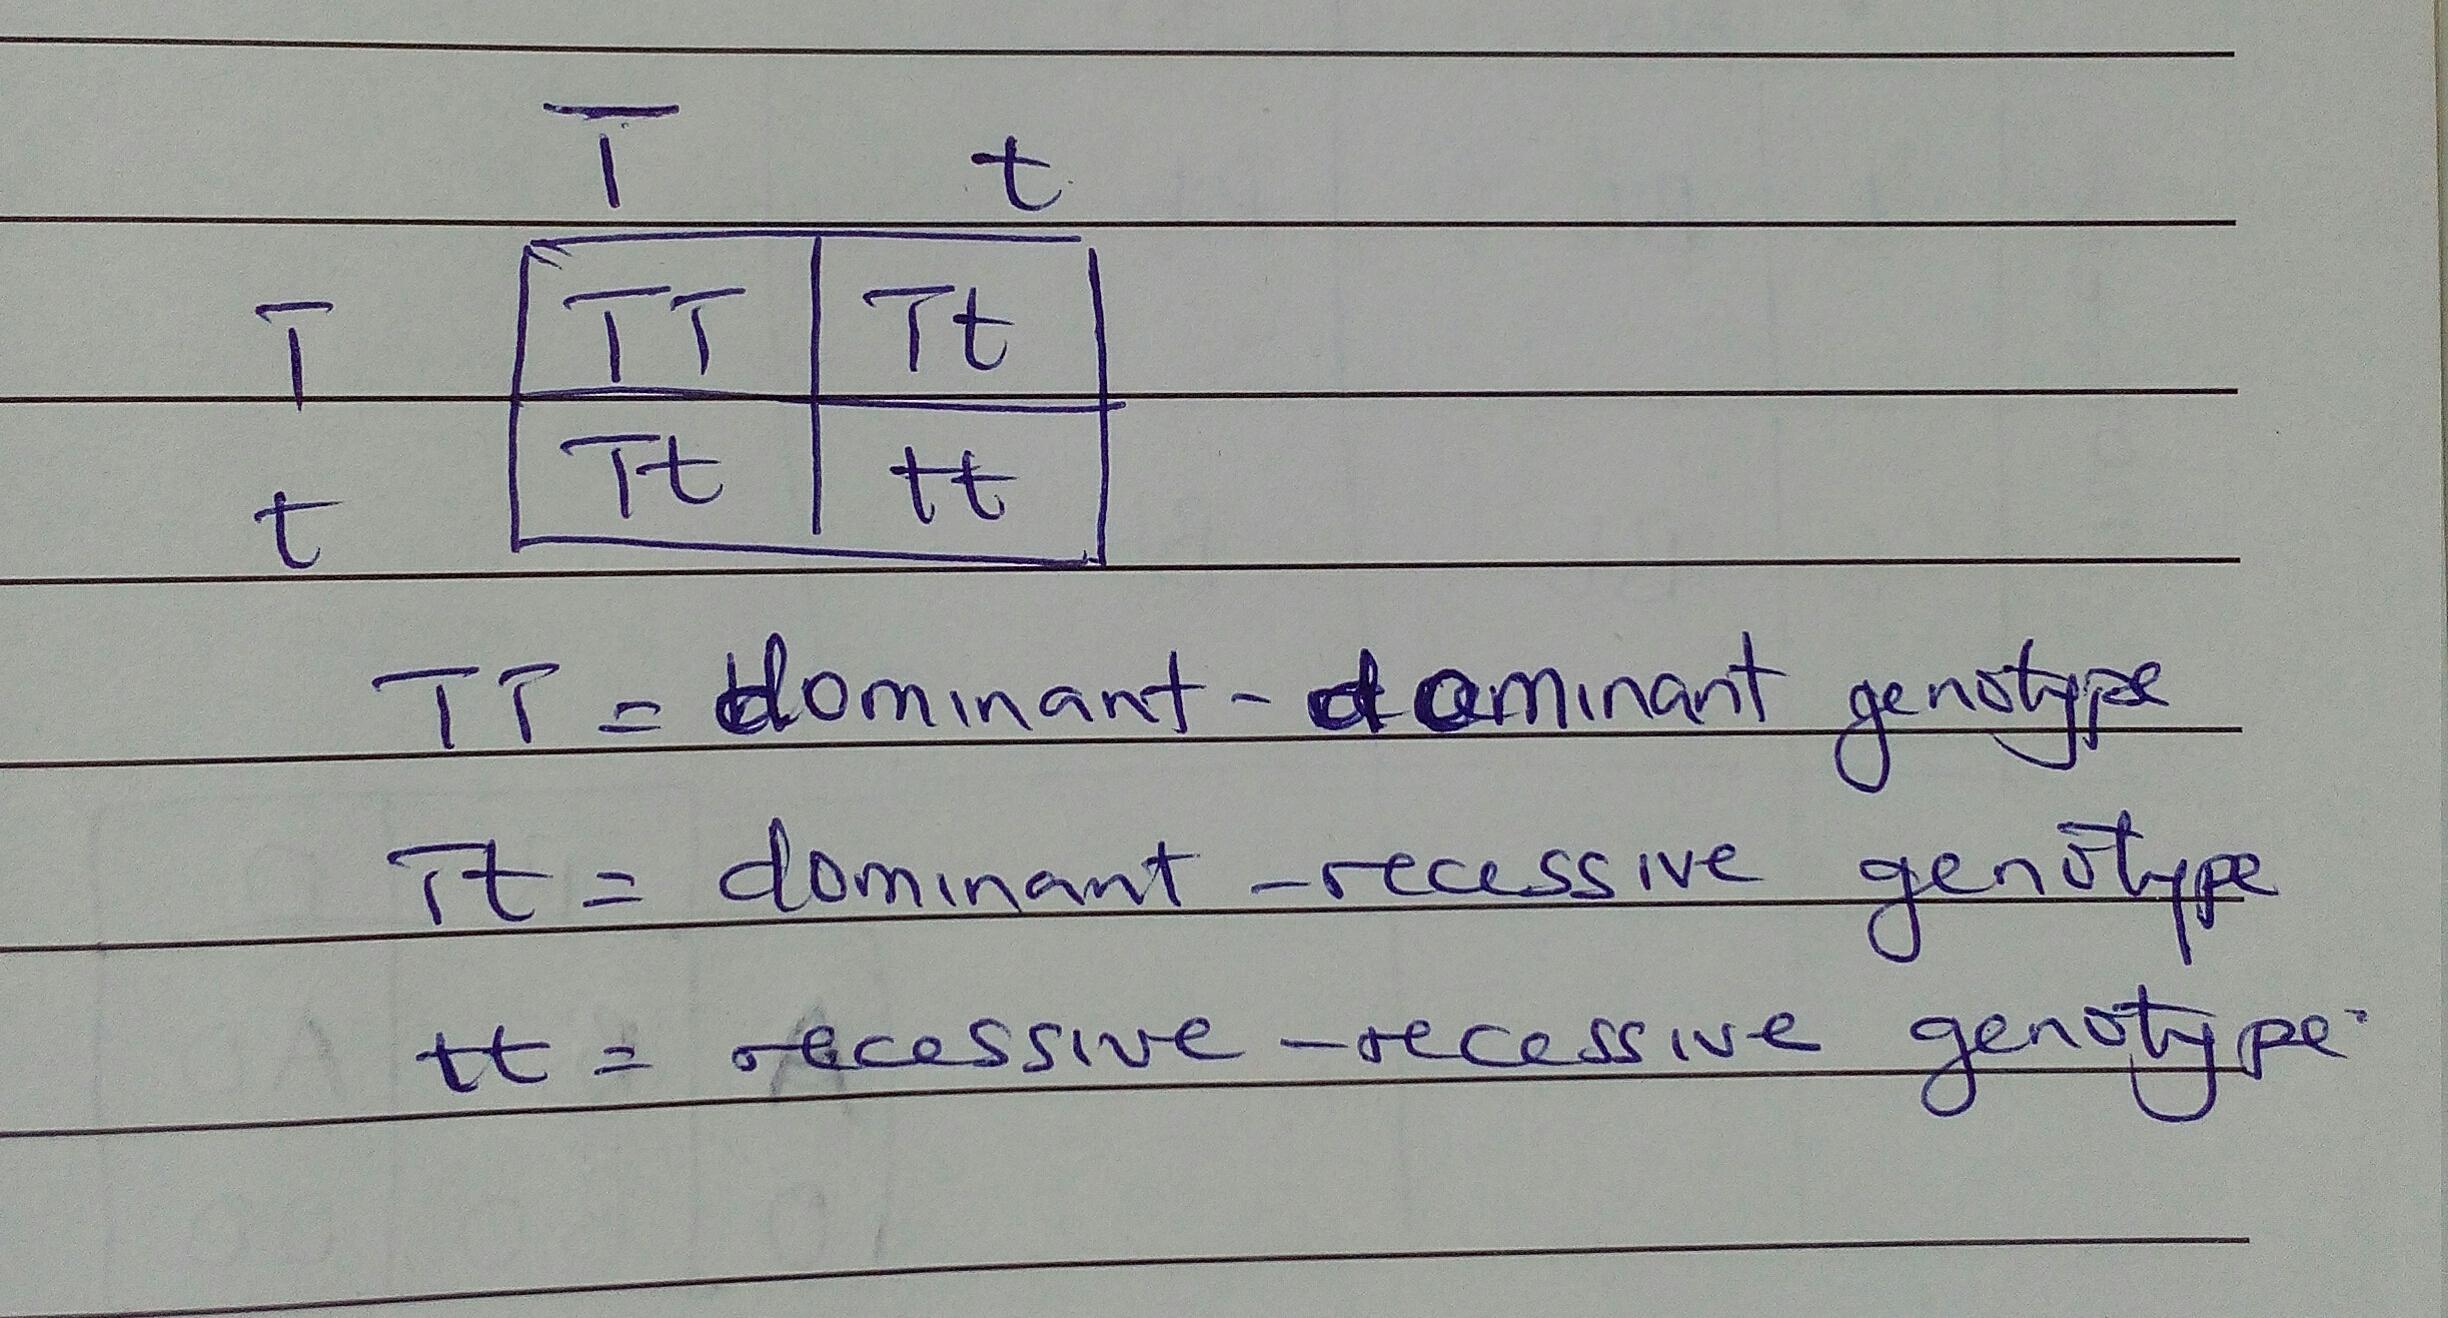 T t
T TT Tt
t Tt tt
TT = dominant - dominant genotype
Tt = dominant - recessive genotype
tt = recessive - recessive genotype